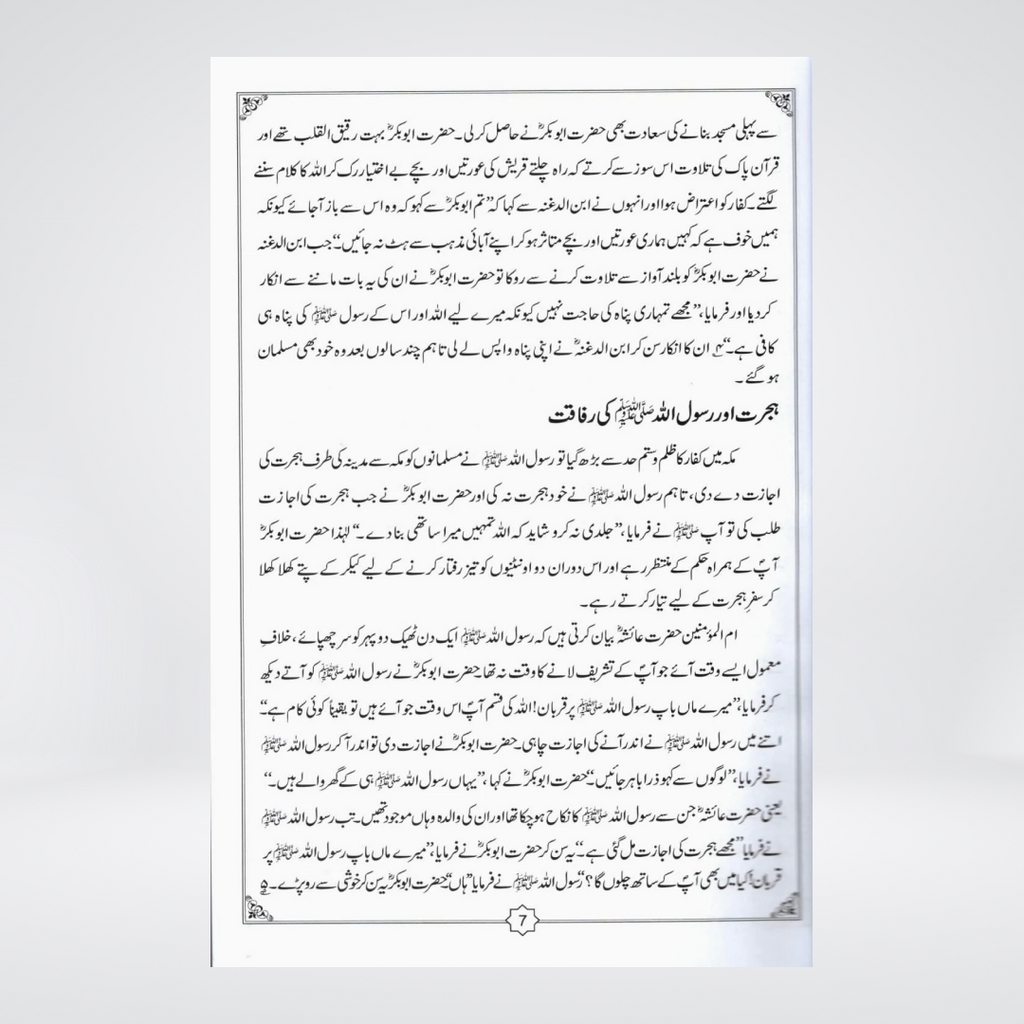 سے پہلی مسجد بنانے کی سعادت بھی حضرت ابوبکرؓ نے حاصل کرلی۔ حضرت ابوبکرؓ بہت رقیق القلب تھے اور
قرآن پاک کی تلاوت اس سوز سے کرتے کہ راہ چلتے قریش کی عورتیں اور بچے بے اختیار رک کر اللہ کا کلام سننے
لگتے۔ کفار کو اعتراض ہوا اور انہوں نے ابن الدغنہ سے کہا کہ ”تم ابوبکرؓ سے کہو کہ وہ اس سے باز آجائے کیونکہ
ہمیں خوف ہے کہ کہیں ہماری عورتیں اور بچے متاثر ہو کر اپنے آبائی مذہب سے ہٹ نہ جائیں۔“ جب ابن الدغنہ
نے حضرت ابوبکرؓ کو بلند آواز سے تلاوت کرنے سے روکا تو حضرت ابوبکرؓ نے ان کی یہ بات ماننے سے انکار
کردیا اور فرمایا، ”مجھے تمہاری پناہ کی حاجت نہیں کیونکہ میرے لیے اللہ اور اس کے رسول ﷺ کی پناہ ہی
کافی ہے۔“ ۴؎ ان کا انکار سن کر ابن الدغنہؓ نے اپنی پناہ واپس لے لی تاہم چند سالوں بعد وہ خود بھی مسلمان
ہو گئے۔
ہجرت اور رسول اللہ ﷺ کی رفاقت
مکہ میں کفار کا ظلم و ستم حد سے بڑھ گیا تو رسول اللہ ﷺ نے مسلمانوں کو مکہ سے مدینہ کی طرف ہجرت کی
اجازت دے دی، تاہم رسول اللہ ﷺ نے خود ہجرت نہ کی اور حضرت ابوبکرؓ نے جب ہجرت کی اجازت
طلب کی تو آپ ﷺ نے فرمایا، ”جلدی نہ کرو شاید کہ اللہ تمہیں میرا ساتھی بنا دے۔“ لہٰذا حضرت ابوبکرؓ
آپؐ کے ہمراہ حکم کے منتظر رہے اور اس دوران دو اونٹنیوں کو تیز رفتار کرنے کے لیے کیکر کے پتے کھلا کھلا
کر سفرِ ہجرت کے لیے تیار کرتے رہے۔
ام المؤمنین حضرت عائشہؓ بیان کرتی ہیں کہ رسول اللہ ﷺ ایک دن ٹھیک دوپہر کو سر چھپائے، خلافِ
معمول ایسے وقت آئے جو آپؐ کے تشریف لانے کا وقت نہ تھا۔ حضرت ابوبکرؓ نے رسول اللہ ﷺ کو آتے دیکھ
کر فرمایا، ”میرے ماں باپ رسول اللہ ﷺ پر قربان! اللہ کی قسم آپؐ اس وقت جو آئے ہیں تو یقیناً کوئی کام ہے۔“
اتنے میں رسول اللہ ﷺ نے اندر آنے کی اجازت چاہی۔ حضرت ابوبکرؓ نے اجازت دی تو اندر آ کر رسول اللہ ﷺ
نے فرمایا، ”لوگوں سے کہو ذرا باہر جائیں۔“ حضرت ابوبکرؓ نے کہا، ”یہاں رسول اللہ ﷺ ہی کے گھر والے ہیں۔“
یعنی حضرت عائشہؓ جن سے رسول اللہ ﷺ کا نکاح ہوچکا تھا اور ان کی والدہ وہاں موجود تھیں۔ تب رسول اللہ ﷺ
نے فرمایا ”مجھے ہجرت کی اجازت مل گئی ہے۔“ یہ سن کر حضرت ابوبکرؓ نے فرمایا، ”میرے ماں باپ رسول اللہ ﷺ پر
قربان! کیا میں بھی آپؐ کے ساتھ چلوں گا؟“ رسول اللہ ﷺ نے فرمایا ”ہاں“ حضرت ابوبکرؓ یہ سن کر خوشی سے رو پڑے۔ ۵؎
7